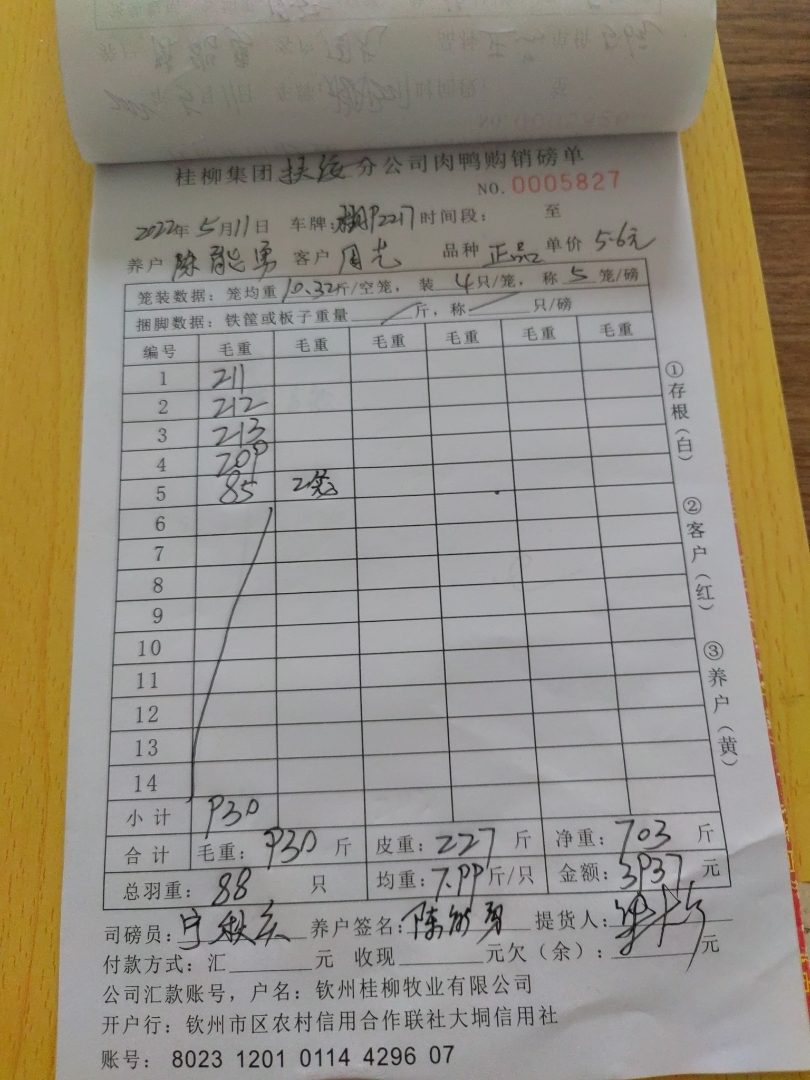 桂柳集团扶绥分公司肉鸭购销磅单
NO. 0005827
2022年5月11日 车牌: P2217 时间段: 至
养户 陈能勇 客户 周光 品种 正品 单价 5.6元
笼装数据: 笼均重10.32斤/空笼, 装 4只/笼, 称 5 笼/磅
捆脚数据: 铁筐或板子重量 斤, 称 只/磅
编号 毛重 毛重 毛重 毛重 毛重 毛重
1 211
2 212
3 213
4 209
5 85 2笼
6
7
8
9
10
11
12
13
14
小计 930
合计 毛重: 930 斤 皮重: 227 斤 净重: 703 斤
总羽重: 88 只 均重: 7.99斤/只 金额: 3937 元
司磅员: 养户签名: 陈能勇 提货人:
付款方式: 汇 元 收现 元欠(余): 元
公司汇款账号, 户名: 钦州桂柳牧业有限公司
开户行: 钦州市区农村信用合作联社大垌信用社
账号: 8023 1201 0114 4296 07
①存根(白)
②客户(红)
③养户(黄)